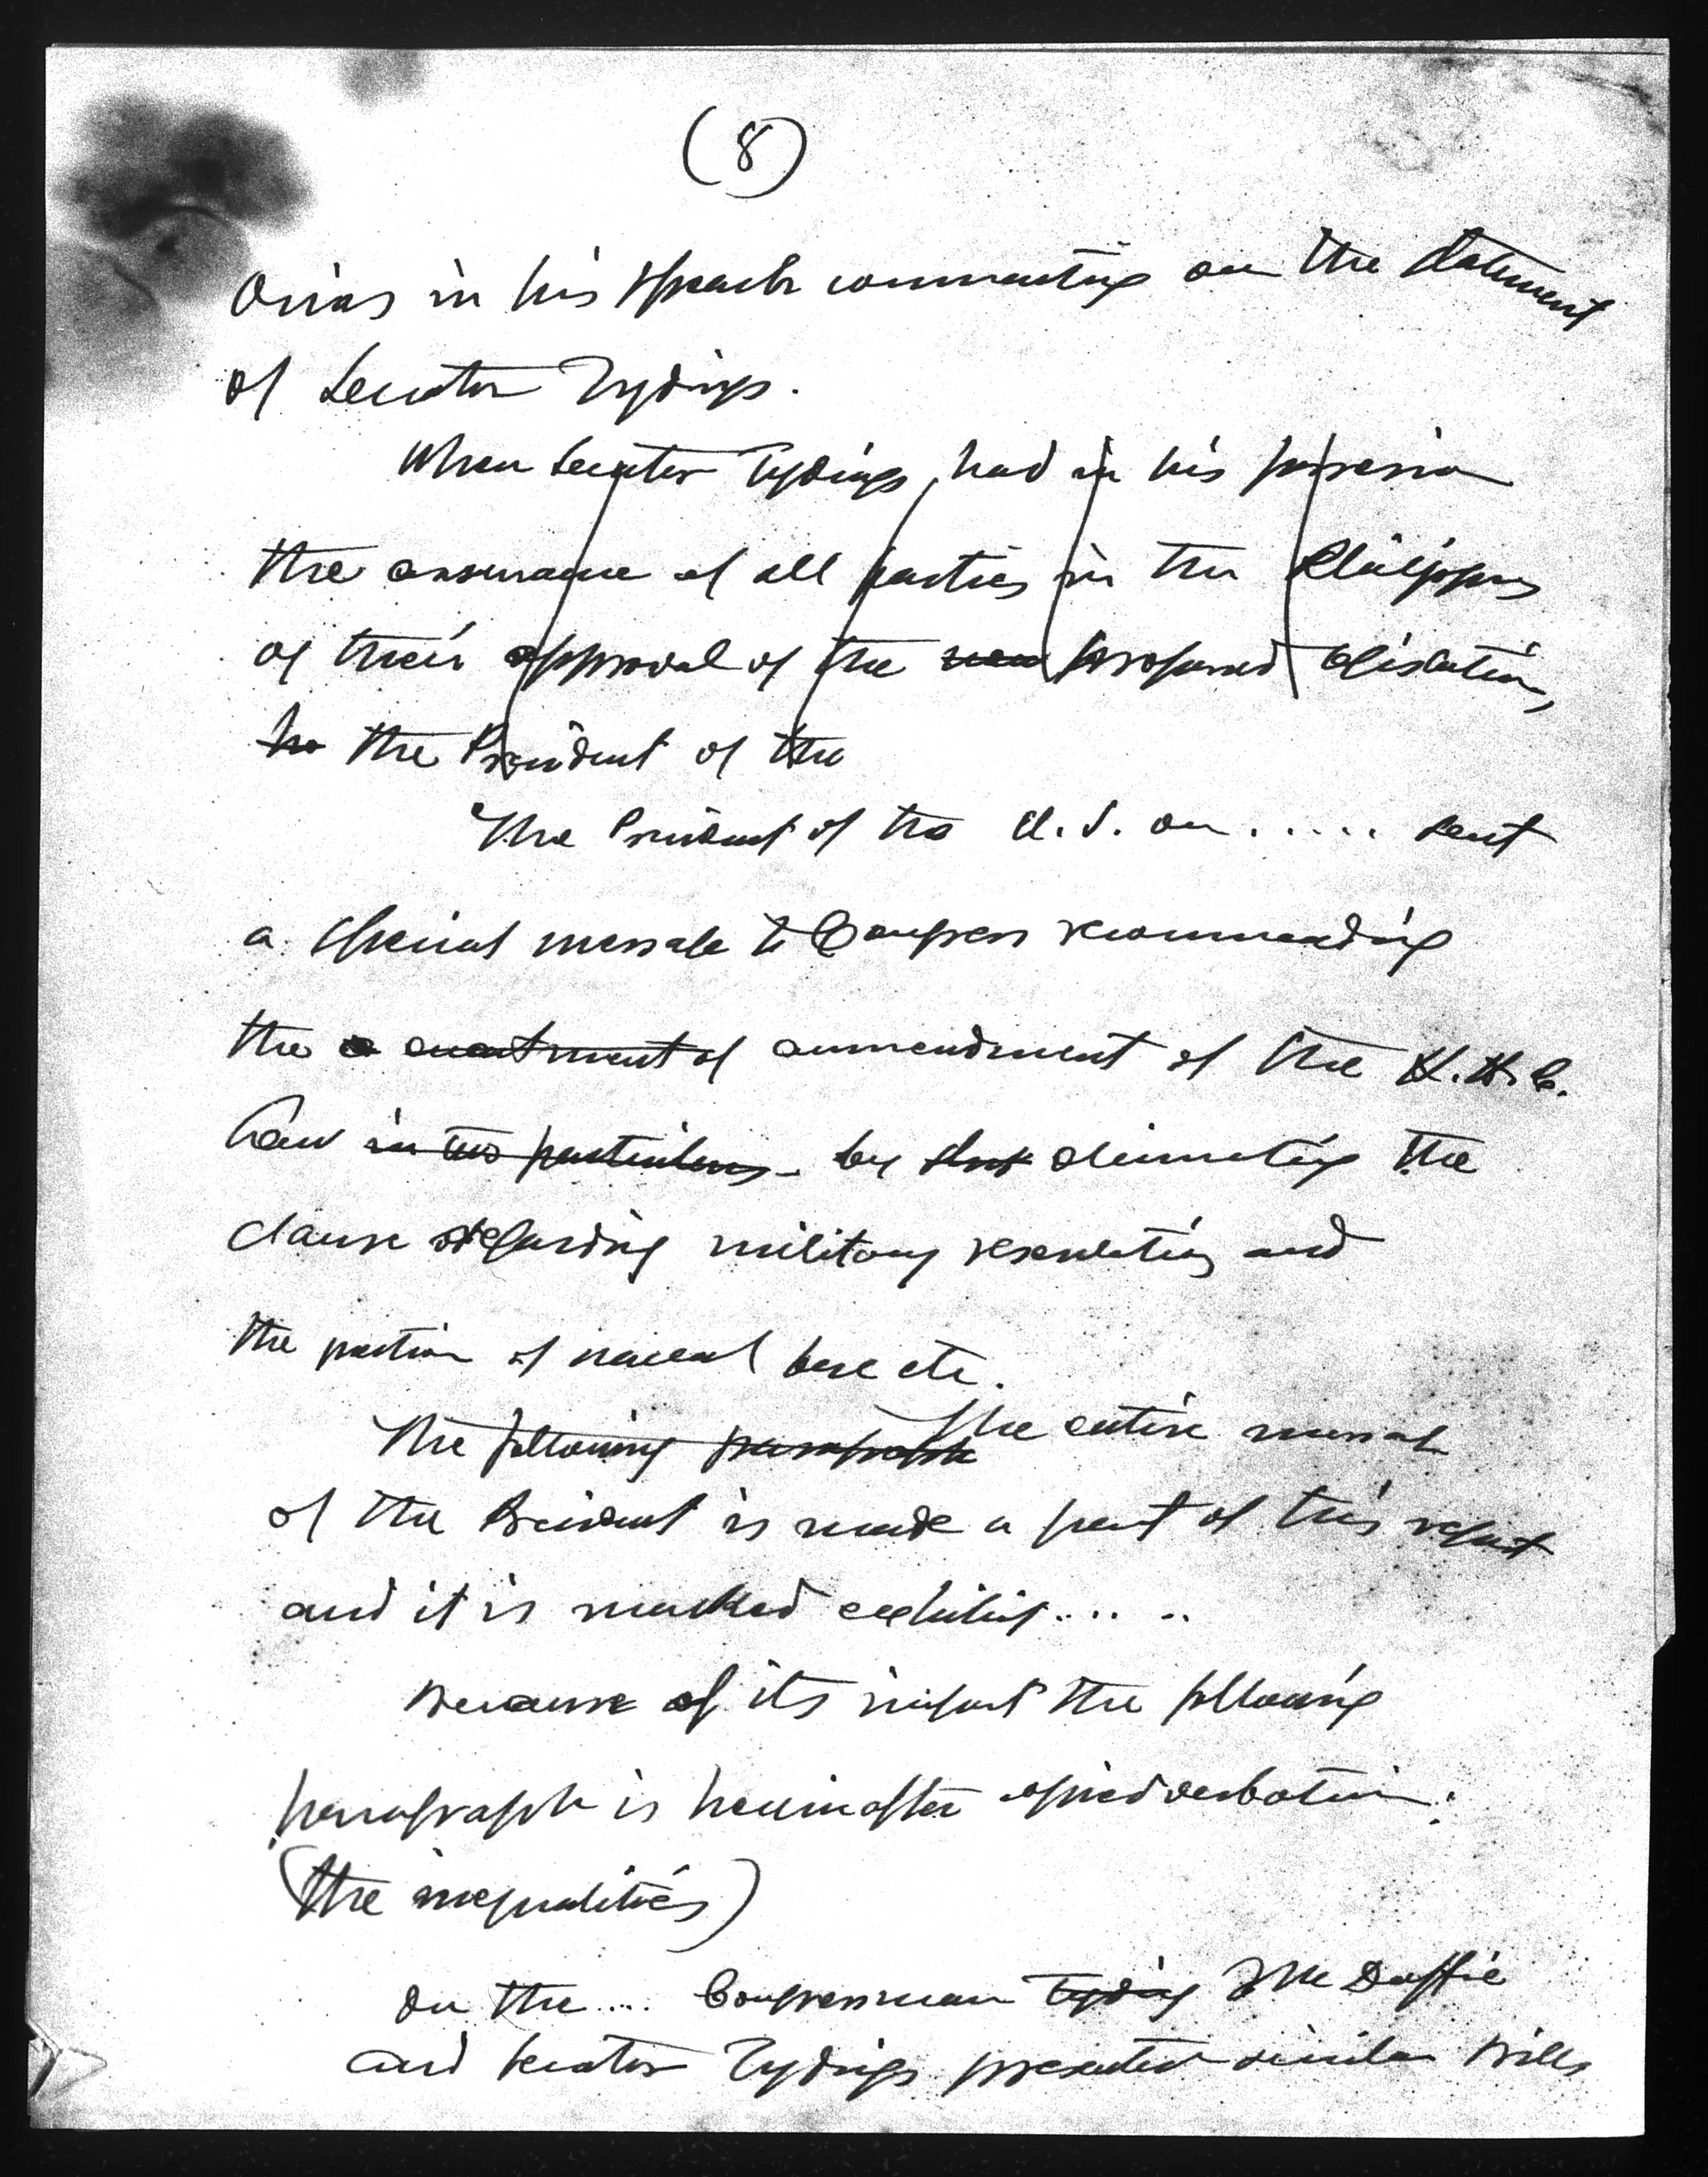 (8)
Orias in his speech commenting on the statement
of Senator Tydings.
When Senator Tydings, had in his possession
the assurance of all parties in the Philippines
of their approval of the new proposed legislation,
he the President of the
The President of the U.S. on ..... sent
a special message to Congress recommending
the a enactment of ammendment of the H.H.C.
Law in two particulars - by eliminating the
clause regarding military reservations and
the portion of naval base etc.
The following paragraph The entire message
of the President is made a part of this report
and it is marked exhibit ......
Because of its import the following
paragraph is hereinafter copied verbatim:
(the inequalities)
On the .... Congressman Tydings McDuffie
and Senator Tydings presented similar bills